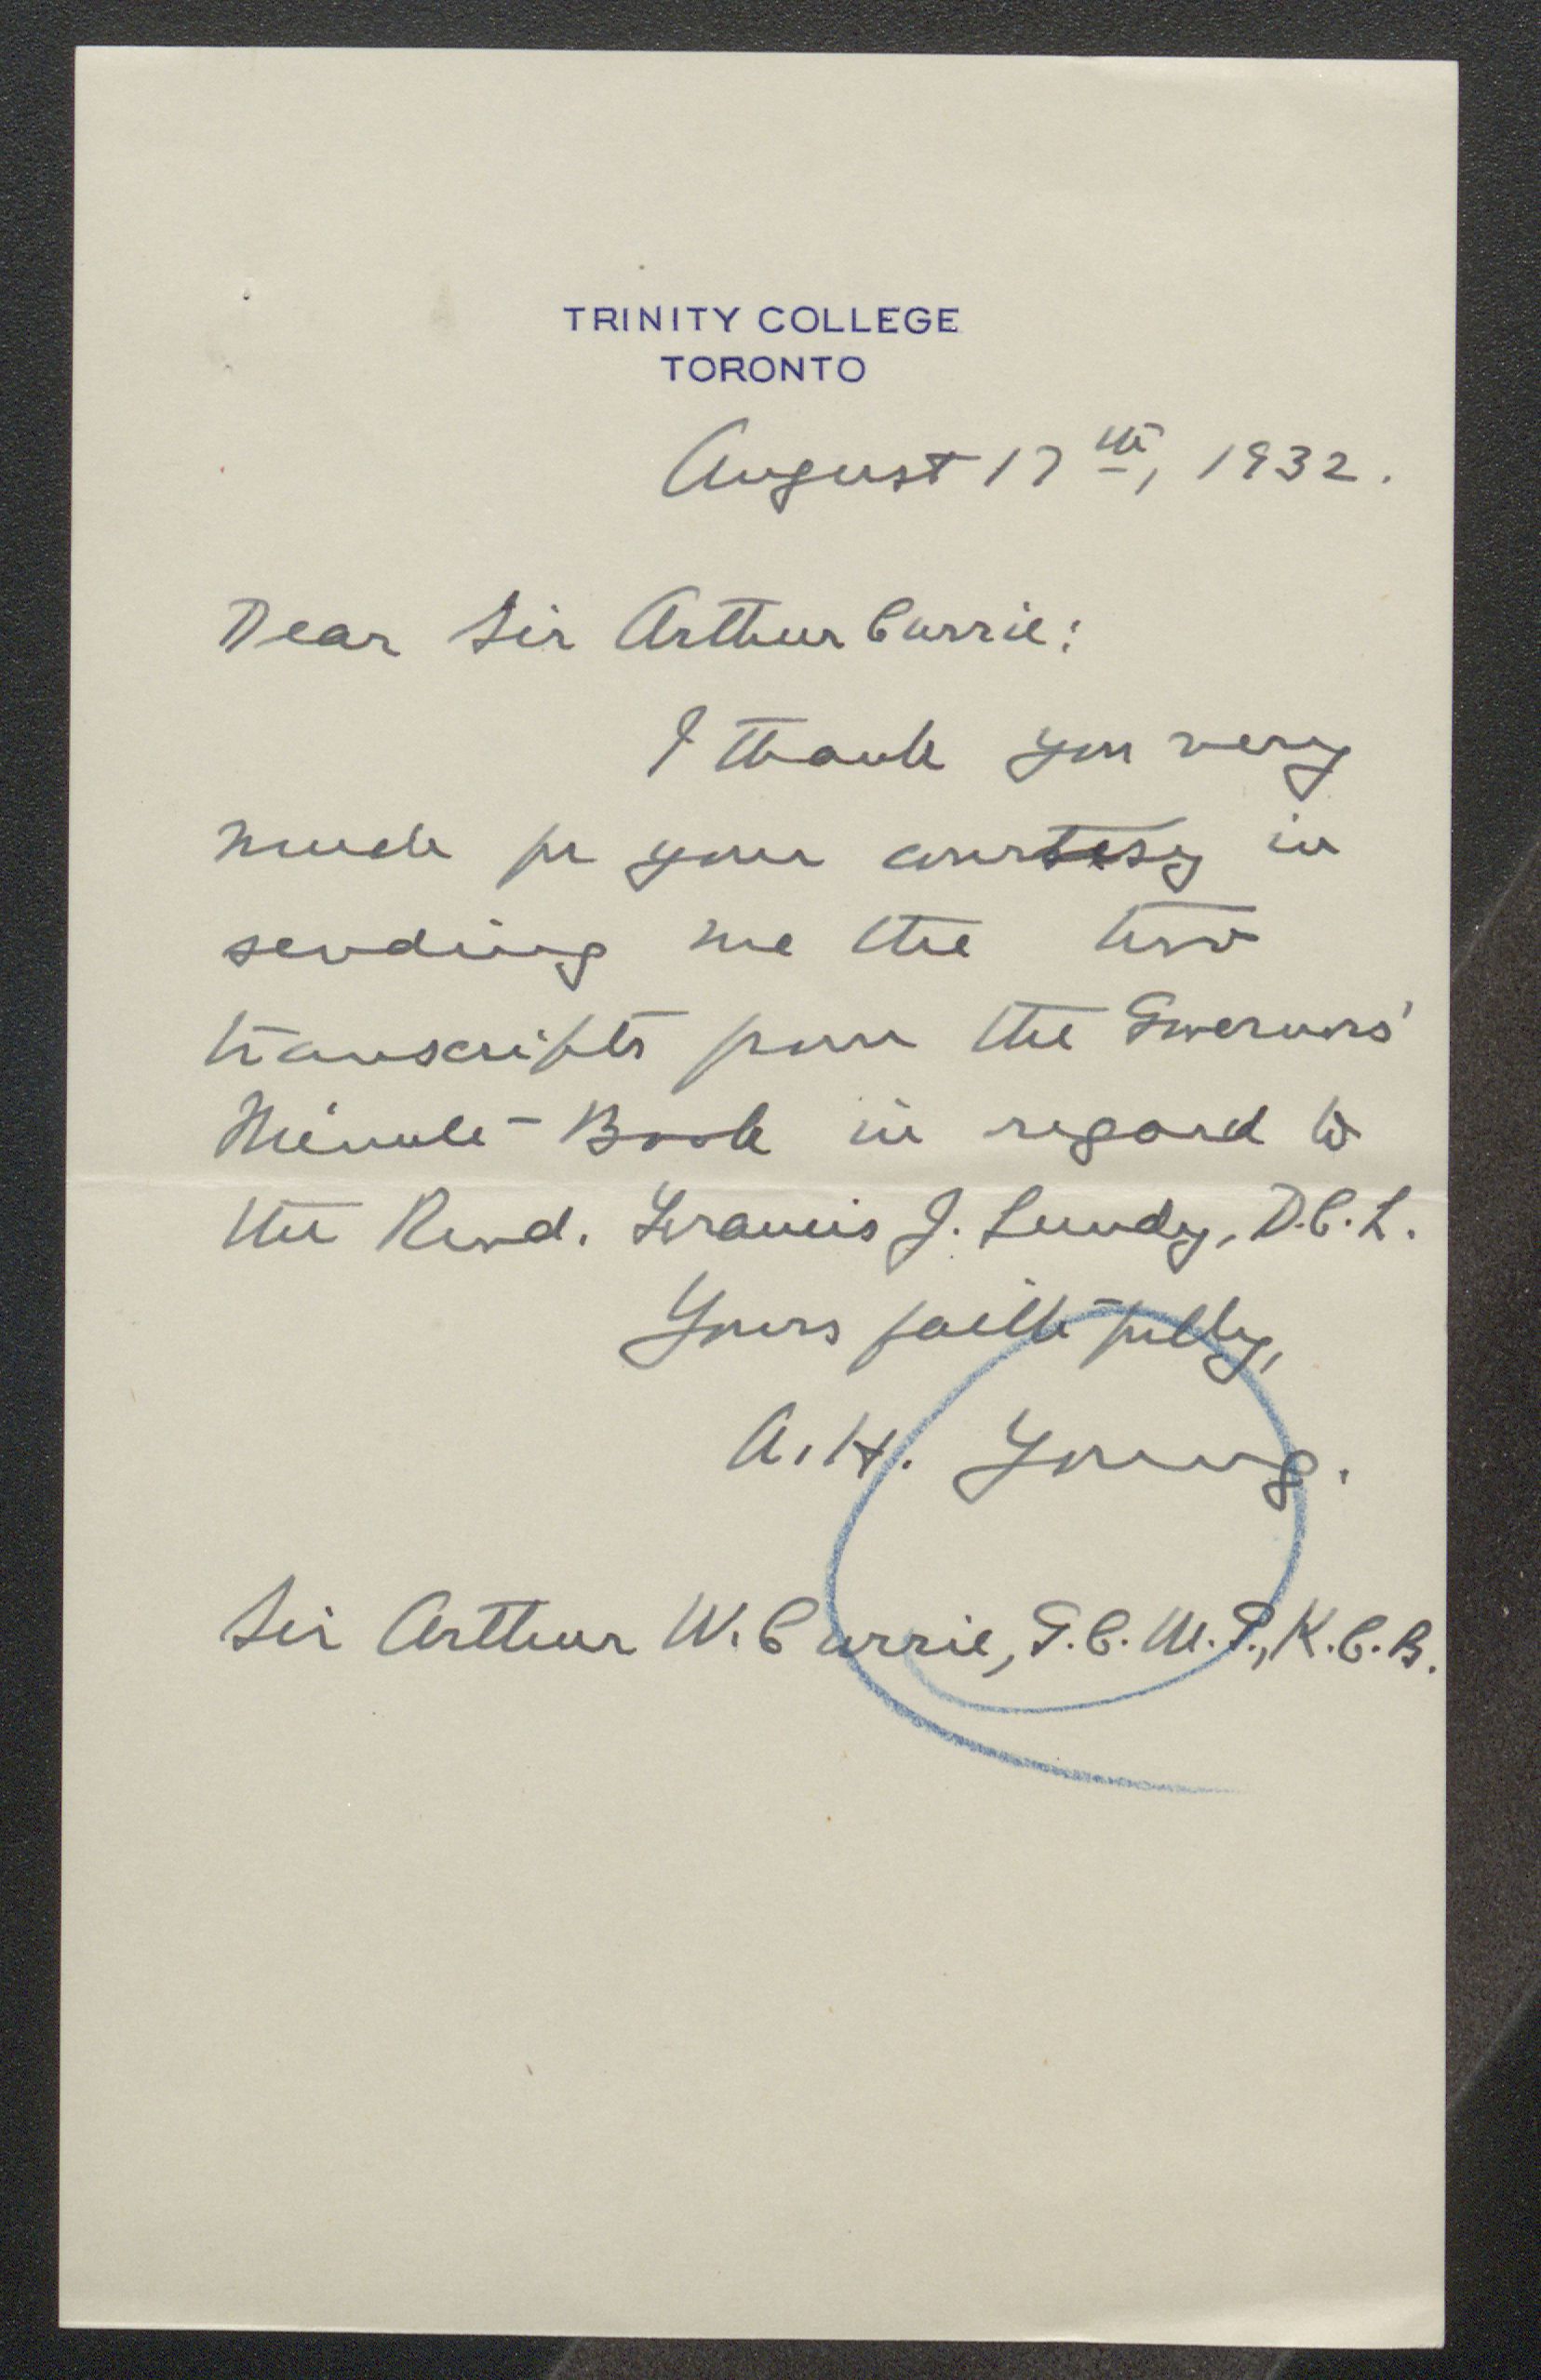 TRINITY COLLEGE
TORONTO
August 17th, 1932.
Dear Sir Arthur Currie:
I thank you very
much for your courtesy in
sending me the two
transcripts from the Governors'
Minute-Book in regard to
the Revd. Francis J. Lundy, D.C.L.
Yours faithfully,
A.H. Young.
Sir Arthur W. Currie, G.C.M.G., K.C.B.